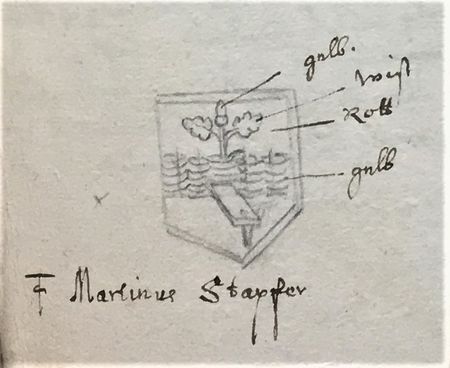 gelb.
wiß
Rott
gelb
F Martinus Stapfer